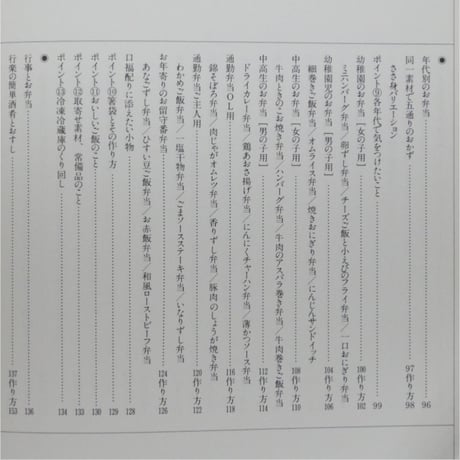 ● 年代別のお弁当……96
同一素材で五通りのおかず……97 作り方 98
ささ身バリエーション
ポイント⑨各年代で気をつけたいこと……99
幼稚園児のお弁当［女の子用］……100 作り方 102
ミニハンバーグ弁当／卵ずし弁当／チーズご飯と小えびのフライ弁当／一口おにぎり弁当
幼稚園児のお弁当［男の子用］……104 作り方 106
細巻きご飯弁当／オムライス弁当／焼きおにぎり弁当／にんじんサンドイッチ
中高生のお弁当［女の子用］……108 作り方 110
牛肉ときのこお焼き弁当／ハンバーグ弁当／牛肉のアスパラ巻き弁当／牛肉巻きご飯弁当
中高生のお弁当［男の子用］……112 作り方 114
ドライカレー弁当／鶏あおさ揚げ弁当／にんにくチャーハン弁当／薄かつソース弁当
通勤弁当OL用……116 作り方 118
錦そぼろ弁当／肉じゃがオムレツ弁当／香りずし弁当／豚肉のしょうが焼き弁当
通勤弁当ご主人用……120 作り方 122
わかめご飯弁当／一塩干物弁当／ごまソースステーキ弁当／いなりずし弁当
お年寄りのお留守番弁当……124 作り方 126
あなごずし弁当／ひすい豆ご飯弁当／お赤飯弁当／和風ローストビーフ弁当
口福配りに添えたい小物……128
ポイント⑩箸袋とその作り方……129
ポイント⑪おいしいご飯のこと……130
ポイント⑫取寄せ素材、常備品のこと……133
ポイント⑬冷凍冷蔵庫のくり回し……134
● 行事とお弁当……136
行楽の簡単酒肴とおすし……137 作り方 153